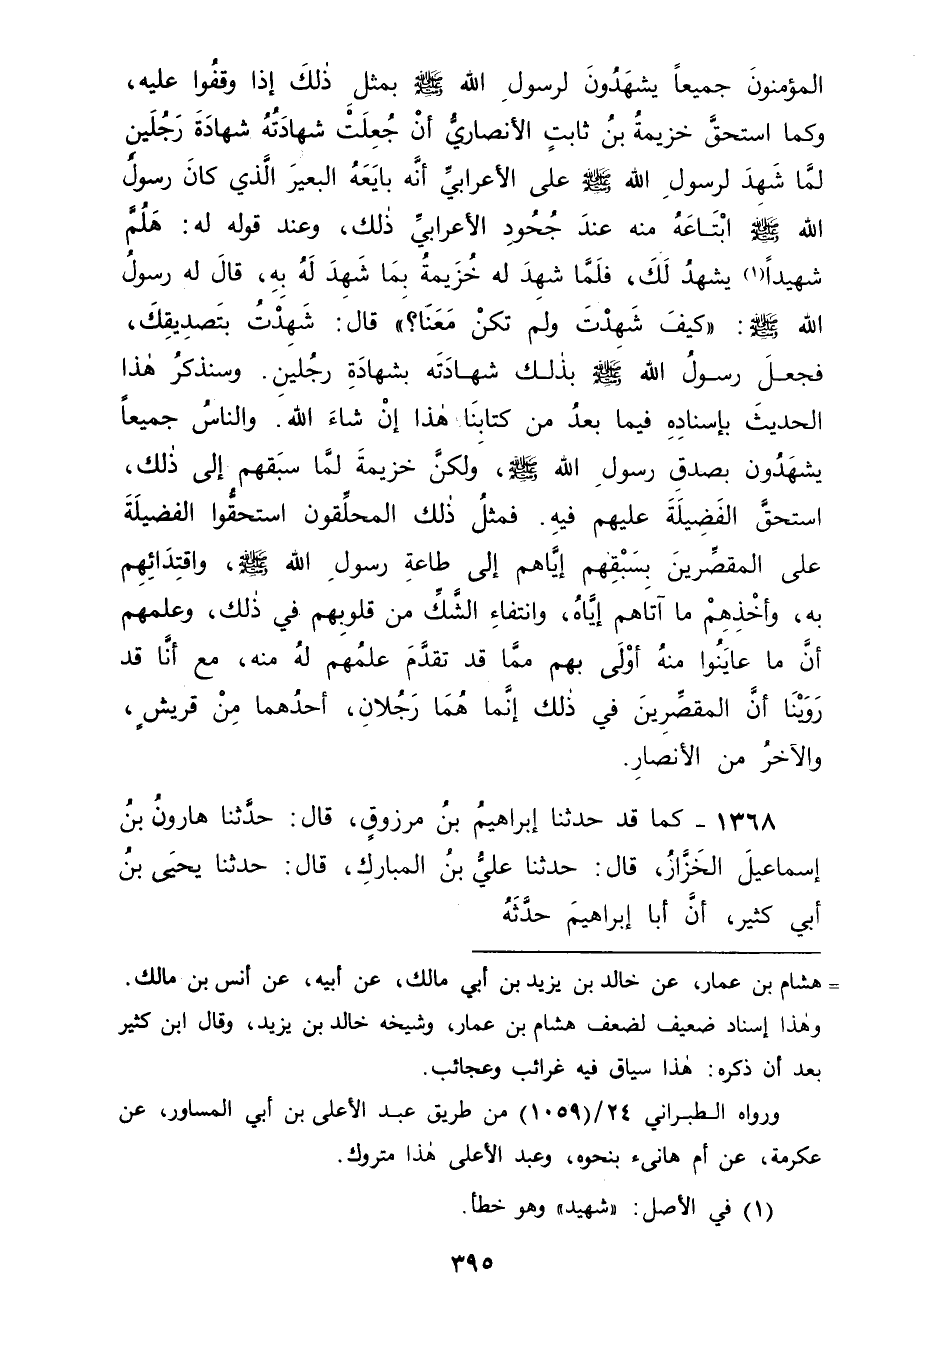 المؤمنونَ جميعاً يشهَدُونَ لرسولِ الله ﷺ بمثل ذٰلكَ إذا وقفُوا عليه،
وكما استحقَّ خزيمةُ بنُ ثابتٍ الأنصاريُّ أنْ جُعِلَتْ شهادَتُهُ شهادَةَ رَجُلَينِ
لمَّا شَهِدَ لرسولِ الله ﷺ على الأعرابيِّ أنَّه بايَعَهُ البعيرَ الَّذي كانَ رسولُ
الله ﷺ ابْتَاعَهُ منه عندَ جُحُودِ الأعرابيِّ ذٰلك، وعند قوله له: هَلُمَّ
شهيداً(١) يشهدُ لَكَ، فلَمَّا شهِدَ له خُزَيمةُ بمَا شَهِدَ لَهُ بِهِ، قالَ له رسولُ
الله ﷺ: «كيفَ شَهِدْتَ ولم تكنْ مَعَنَا؟» قال: شَهِدْتُ بتَصدِيقِكَ،
فجعلَ رسولُ الله ﷺ بذٰلك شهادَتَه بشهادَةِ رجُلينِ. وسنذكرُ هٰذا
الحديثَ بإسنادِهِ فيما بعدُ من كتابِنَا هٰذا إنْ شاءَ الله. والناسُ جميعاً
يشهَدُون بصدقِ رسولِ الله ﷺ، ولكنَّ خزيمةَ لمَّا سبَقهم إلى ذٰلك،
استحقَّ الفَضِيلَةَ عليهم فيهِ. فمثلُ ذٰلك المحلِّقون استحقُّوا الفضيلَةَ
على المقصِّرينَ بسَبْقِهم إيَّاهم إلى طاعةِ رسولِ الله ﷺ، واقتِدَائِهم
به، وأخْذِهِمْ ما آتاهم إيَّاهُ، وانتفاءِ الشَّكِّ من قلوبِهم في ذٰلك، وعلمهم
أنَّ ما عايَنُوا منهُ أوْلَى بهم ممَّا قد تقدَّمَ علمُهم لهُ منه، مع أنَّا قد
رَوَيْنَا أنَّ المقصِّرينَ في ذٰلك إنَّما هُمَا رَجُلانِ، أحدُهما مِنْ قريشٍ،
والآخرُ من الأنصارِ.
١٣٦٨ ـ كما قد حدثنا إبراهيمُ بنُ مرزوقٍ، قال: حدَّثنا هارونُ بنُ
إسماعيلَ الخَزَّازُ، قال: حدثنا عليُّ بنُ المباركِ، قال: حدثنا يحيَى بنُ
أبي كثير، أنَّ أبا إبراهيمَ حدَّثَهُ
= هشام بن عمار، عن خالد بن يزيد بن أبي مالك، عن أبيه، عن أنس بن مالك.
وهٰذا إسناد ضعيف لضعف هشام بن عمار، وشيخه خالد بن يزيد، وقال ابن كثير
بعد أن ذكره: هٰذا سياق فيه غرائب وعجائب.
ورواه الطبراني ٢٤/(١٠٥٩) من طريق عبد الأعلى بن أبي المساور، عن
عكرمة، عن أم هانىء بنحوه، وعبد الأعلى هٰذا متروك.
(١) في الأصل: «شهيد» وهو خطأ.
٣٩٥